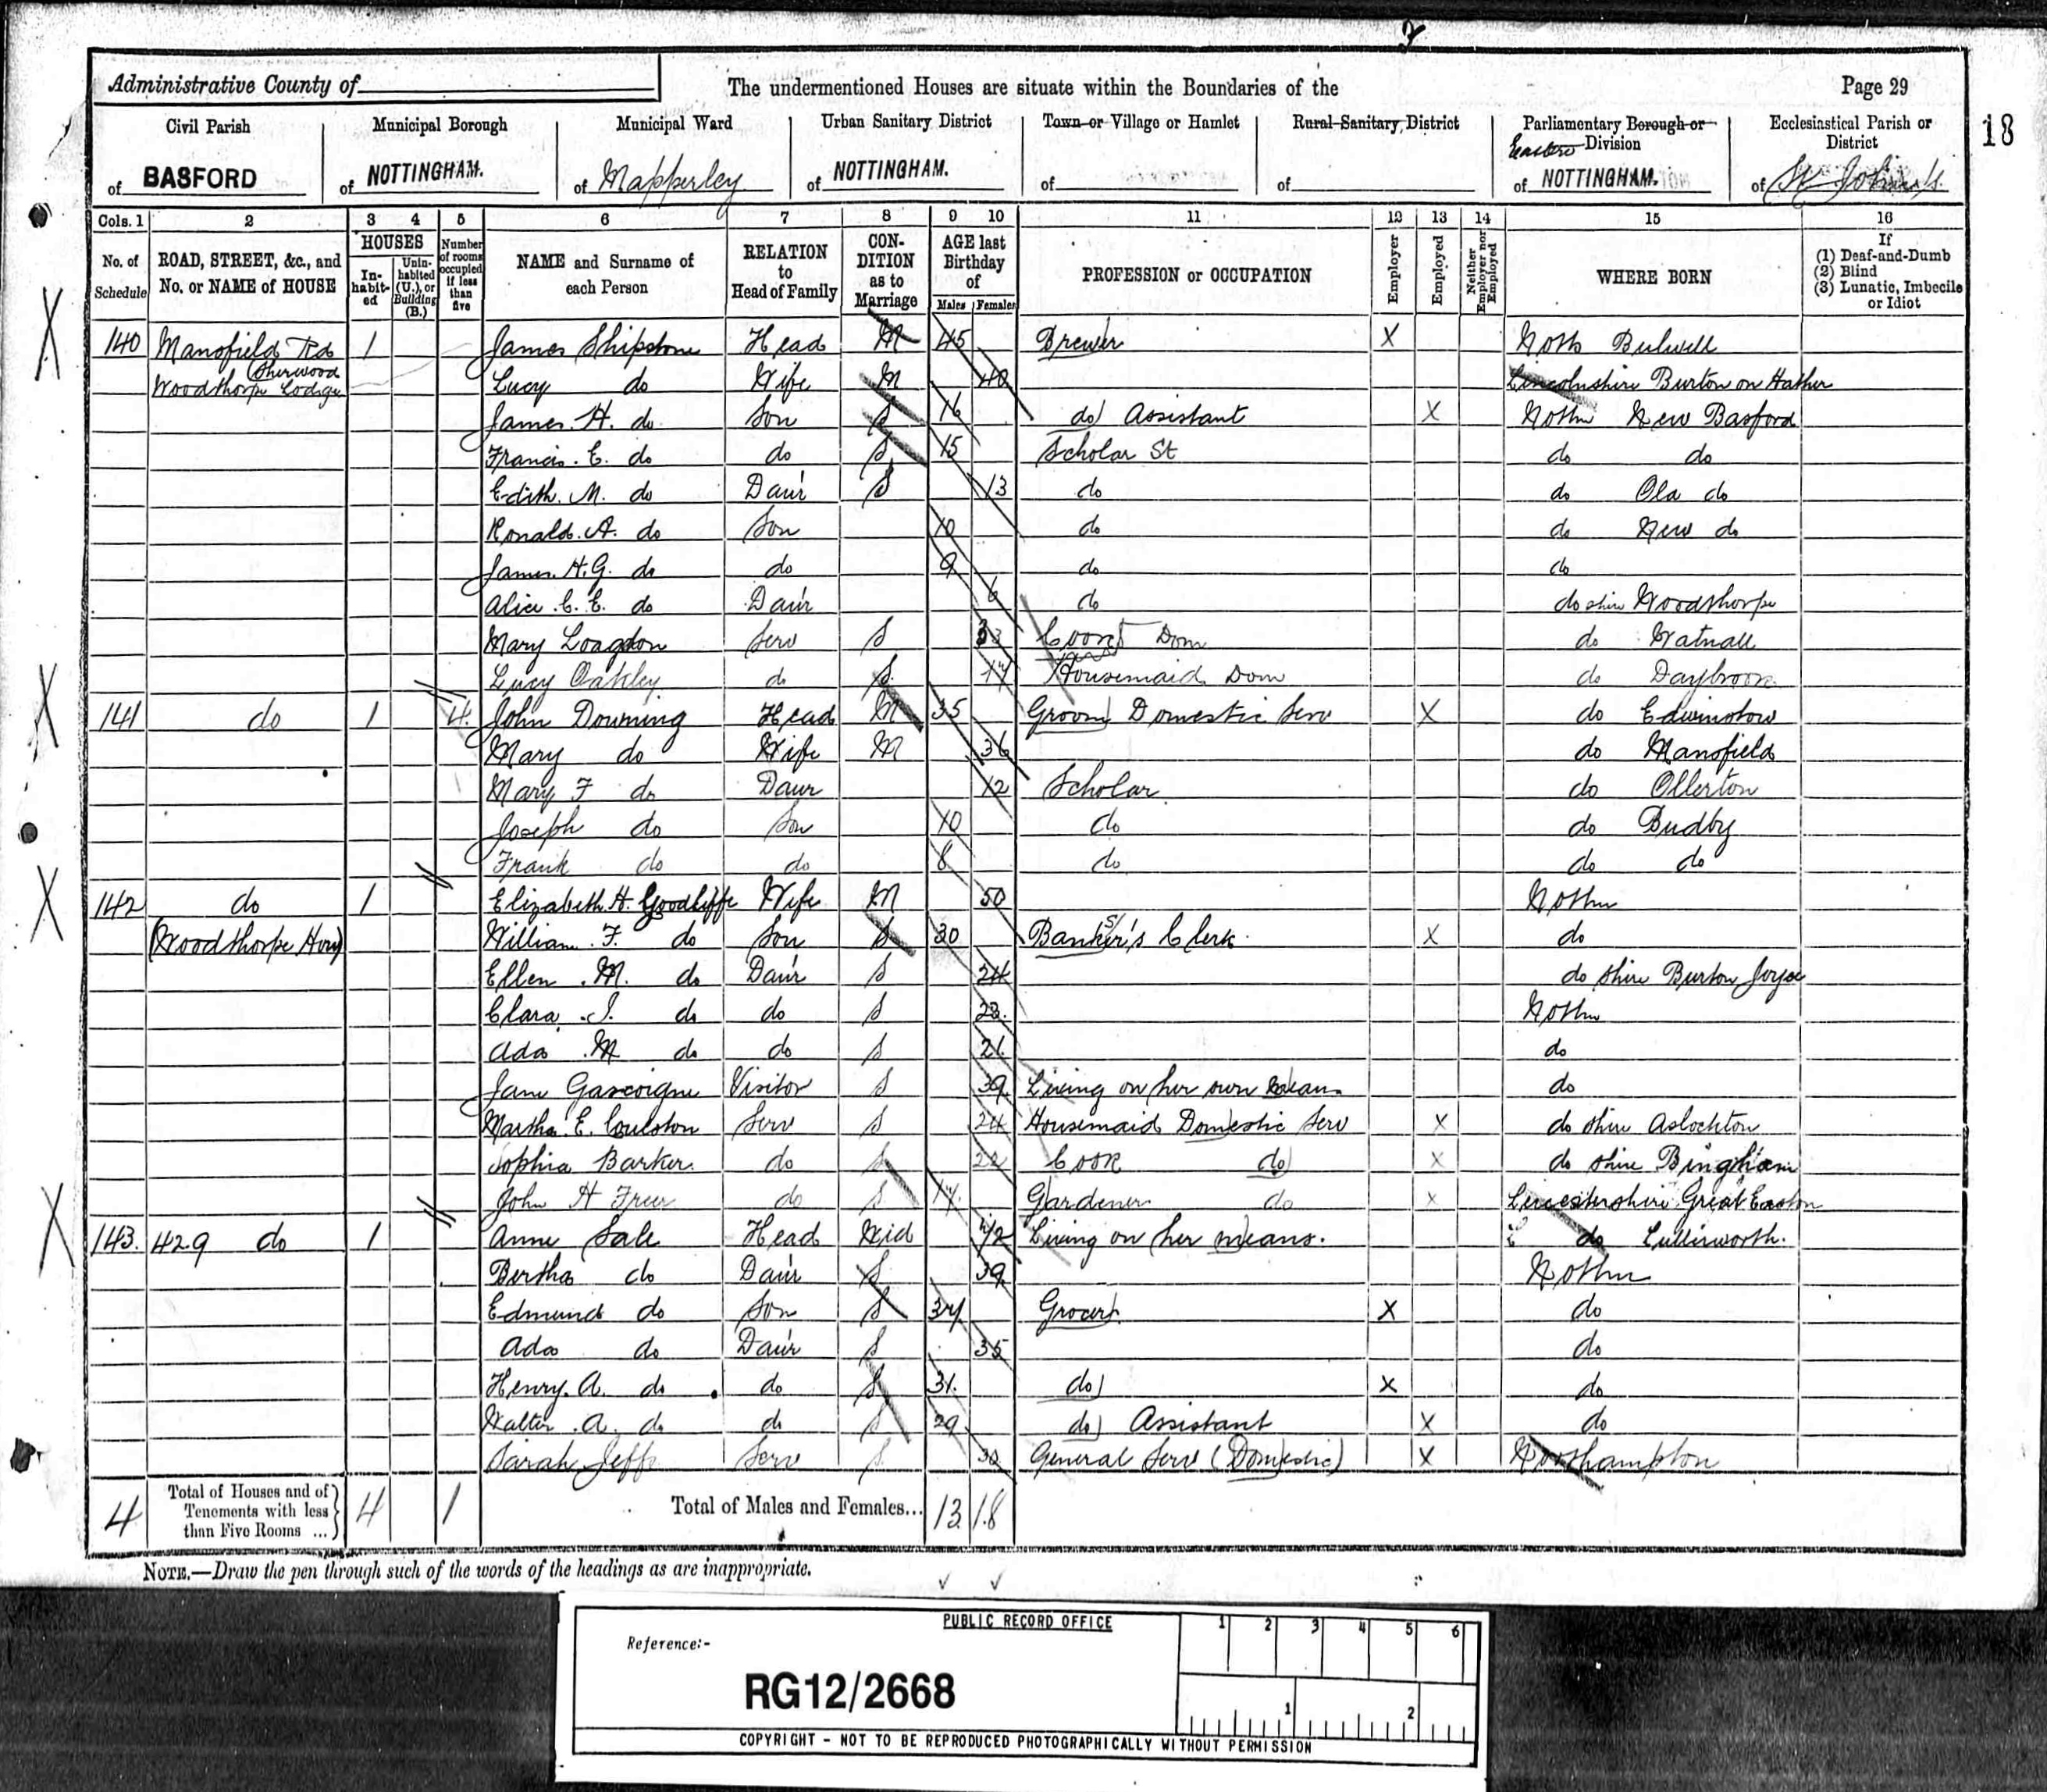 Administrative County of
The undermentioned Houses are situate within the Boundaries of the
Page 29
18
Civil Parish
of BASFORD
Municipal Borough
of NOTTINGHAM.
Municipal Ward
of Mapperley
Urban Sanitary District
of NOTTINGHAM.
Town or Village or Hamlet
of
Rural Sanitary District
of
Parliamentary Borough or
Eastern Division
of NOTTINGHAM.
Ecclesiastical Parish or
District
of St John's
Cols. 1 2 3 4 5 6 7 8 9 10 11 12 13 14 15 16
No. of Schedule
ROAD, STREET, &c., and No. or NAME of HOUSE
HOUSES
In-habit-ed
Unin-habited (U.), or Building (B.)
Number of rooms occupied if less than five
NAME and Surname of each Person
RELATION to Head of Family
CON-DITION as to Marriage
AGE last Birthday of
Males Females
PROFESSION or OCCUPATION
Employer
Employed
Neither Employer nor Employed
WHERE BORN
If
(1) Deaf-and-Dumb
(2) Blind
(3) Lunatic, Imbecile or Idiot
140 Mansfield Rd 1 James Shipstone Head M 45 Brewer X Notts Bulwell
(Sherwood
Woodthorpe Lodge Lucy do Wife M 40 Lincolnshire Burton on Hather
James. H. do Son S 16 do Assistant X Nottm New Basford
Francis. E. do do S 15 Scholar St do do
Edith. M. do Daur S 13 do do Old do
Ronald. A. do Son 10 do do New do
James. H. G. do do 9 do do
Alice. C. E. do Daur 6 do do shire Woodthorpe
Mary Loagdon Serv S 33 Cook Dom do Watnall
Lucy Oakley do S 17 Housemaid Dom do Daybrook
141 do 1 4 John Downing Head M 35 Groom Domestic Serv X do Edwinstow
Mary do Wife M 36 do Mansfield
Mary F do Daur 12 Scholar do Ollerton
Joseph do Son 10 do do Budby
Frank do do 8 do do do
142 do 1 Elizabeth. H. Goodliffe Wife M 50 Nottm
(Woodthorpe William. F. do Son S 30 Banker's Clerk. X do
Ellen. M. do Daur S 24 do shire Burton Joyce
Clara. J. do do S 23. Nottm
Ada. M do do S 21. do
Jane Gascoigne Visitor S 39 Living on her own Means do
Martha. E. Coulston Serv S 24 Housemaid Domestic Serv X do shire Aslockton
Sophia Barker. do S 22 Cook do X do shire Bingham
John H Freer do S 17. Gardener do X Leicestershire Great Easton
143. 429 do 1 Anne Sale Head Wid 72 Living on her means. do
Bertha do Daur S 39 Nottm
Edmund do Son S 37. Grocer X do
Ada do Daur S 35 do
Henry. A. do do S 31. do X do
Walter. A. do do S 29 do Assistant X do
Sarah Jeff Serv S 30 General Serv (Domestic) X Northampton
4 Total of Houses and of Tenements with less than Five Rooms ... 4 1 Total of Males and Females... 13 18
NOTE.—Draw the pen through such of the words of the headings as are inappropriate.
PUBLIC RECORD OFFICE
1 2 3 4 5 6
Reference:-
RG12/2668
1 2
COPYRIGHT - NOT TO BE REPRODUCED PHOTOGRAPHICALLY WITHOUT PERMISSION